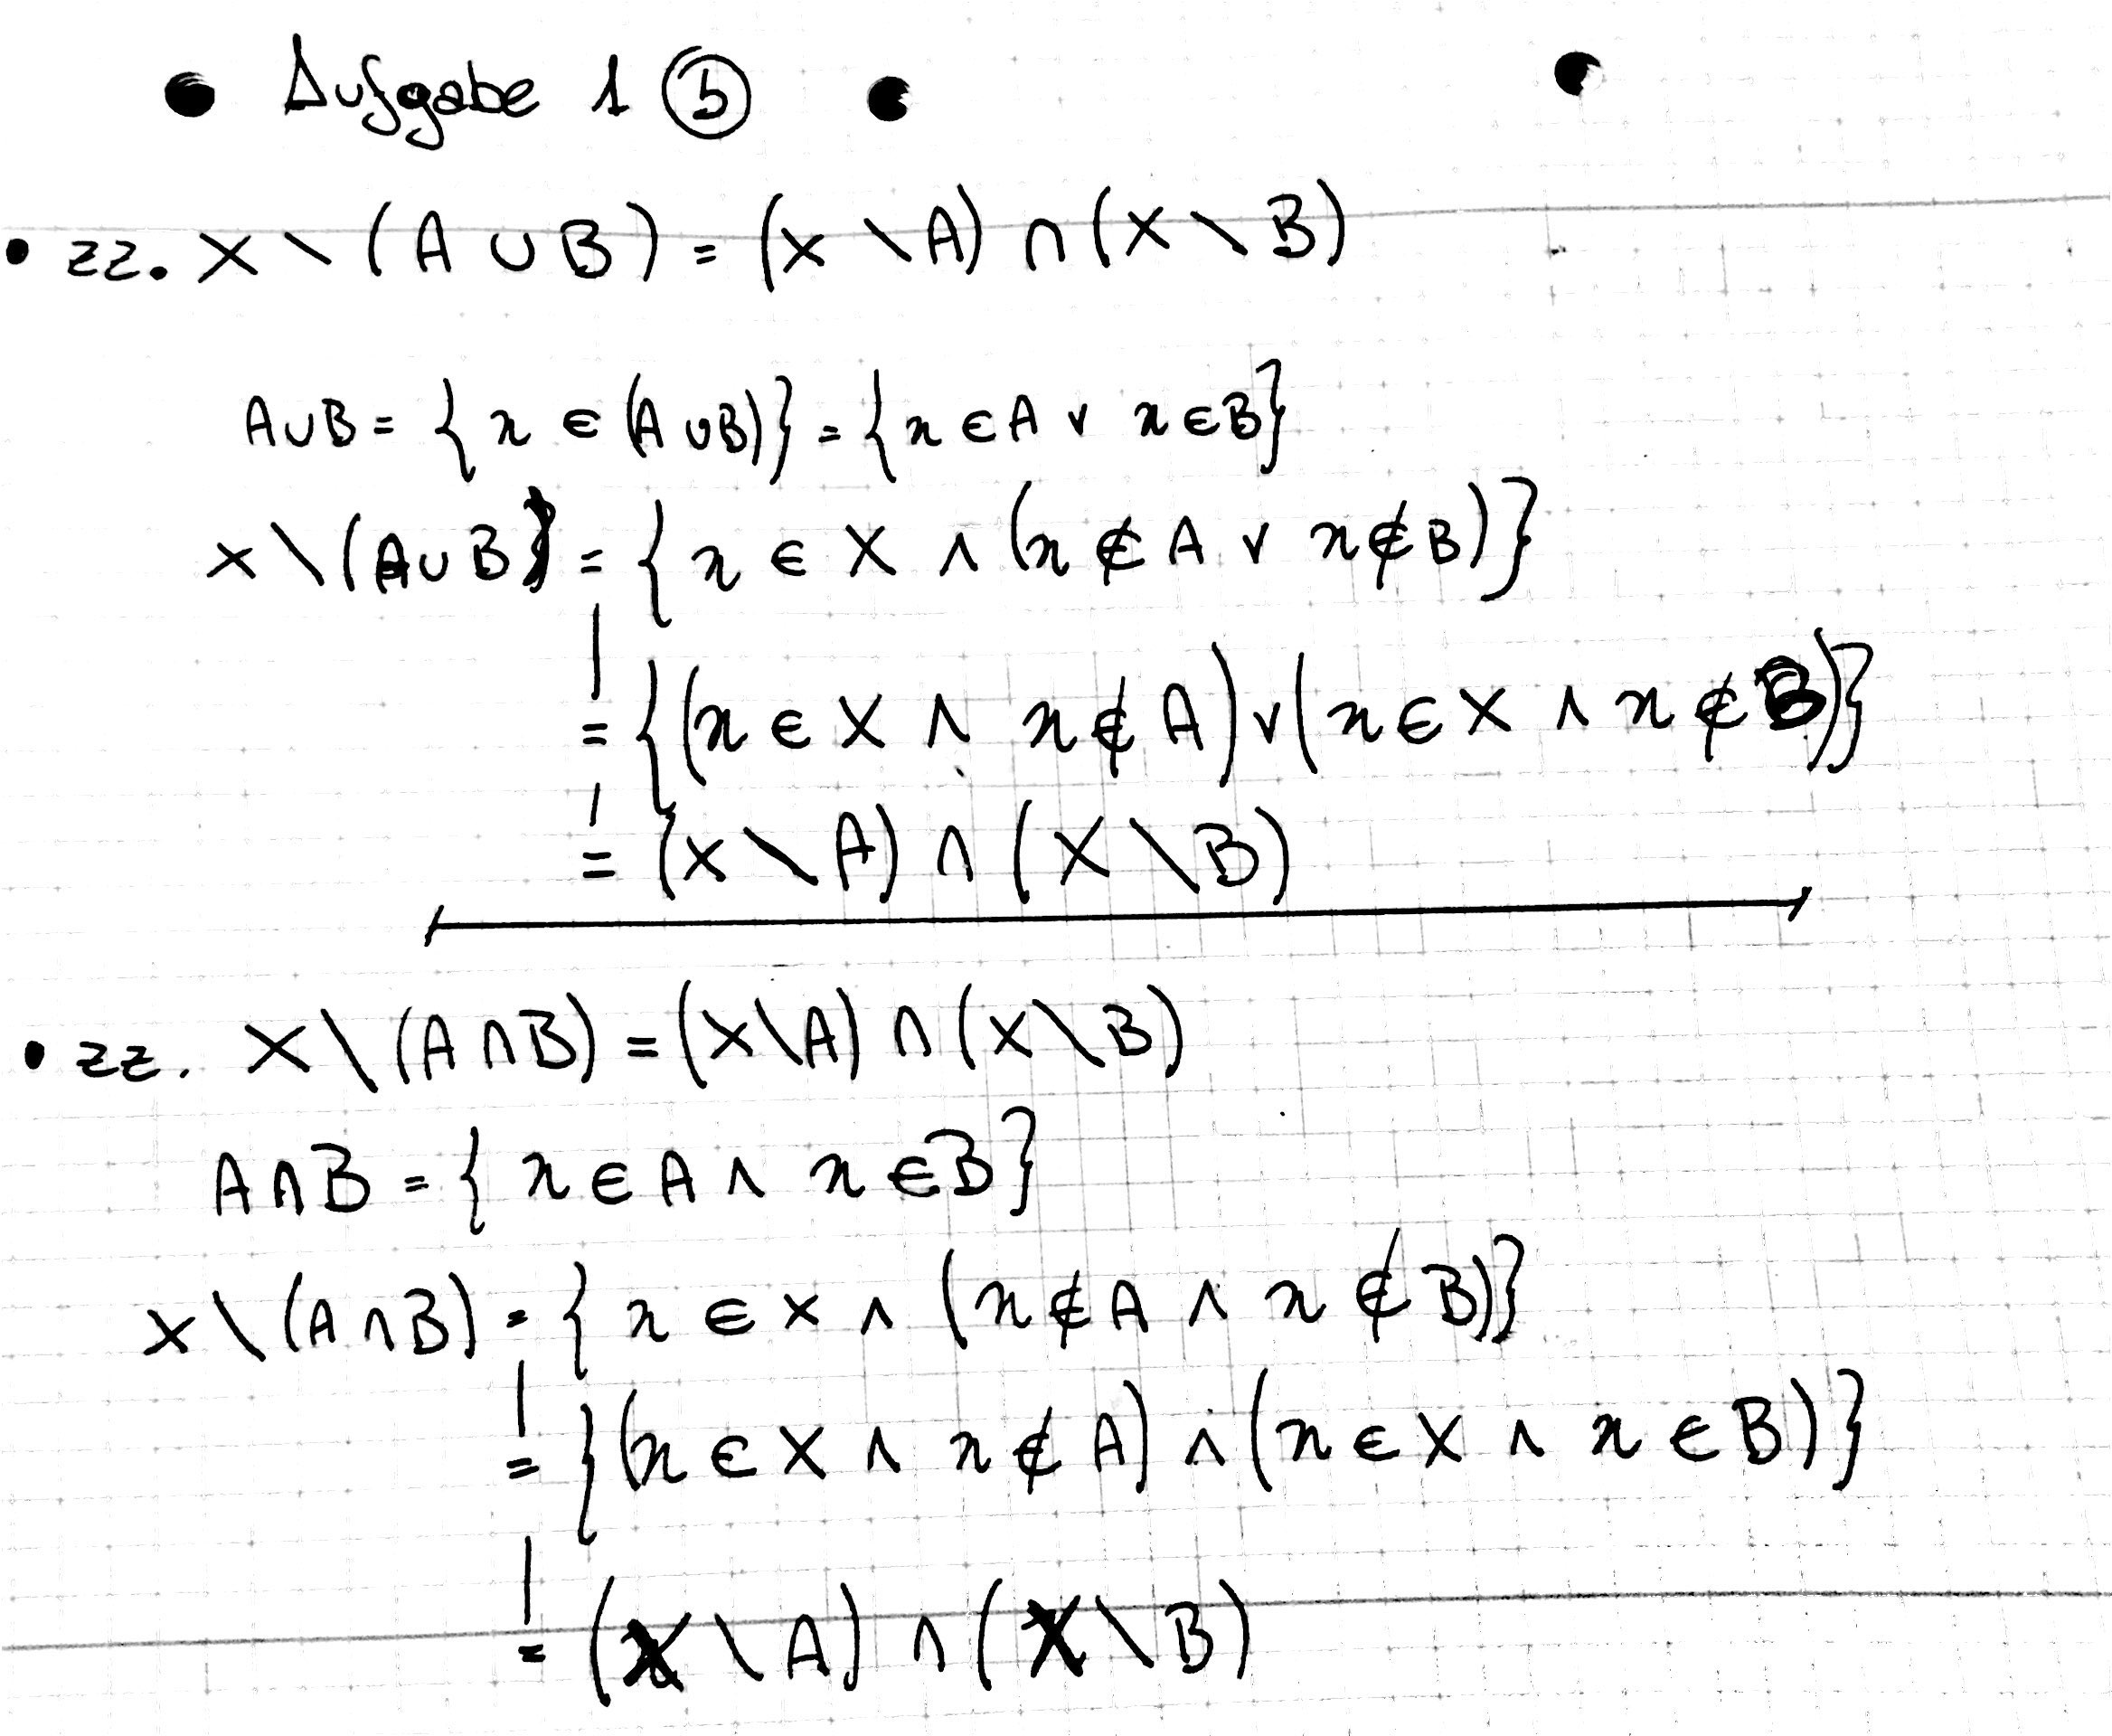 • Aufgabe 1 ⓑ •
• zz. X \ (A ∪ B) = (X \ A) ∩ (X \ B)
A∪B = { x ∈ (A ∪B)} = {x ∈ A ∨ x ∈ B}
X \ (A∪B) = { x ∈ X ∧ (x ∉ A ∨ x ∉ B)}
= {(x ∈ X ∧ x ∉ A) ∨ (x ∈ X ∧ x ∉ B)}
= (X \ A) ∩ (X \ B)
• zz. X \ (A ∩ B) = (X \ A) ∩ (X \ B)
A ∩ B = { x ∈ A ∧ x ∈ B}
X \ (A ∩ B) = { x ∈ X ∧ (x ∉ A ∧ x ∉ B)}
= {(x ∈ X ∧ x ∉ A) ∧ (x ∈ X ∧ x ∈ B)}
= (X \ A) ∩ (X \ B)